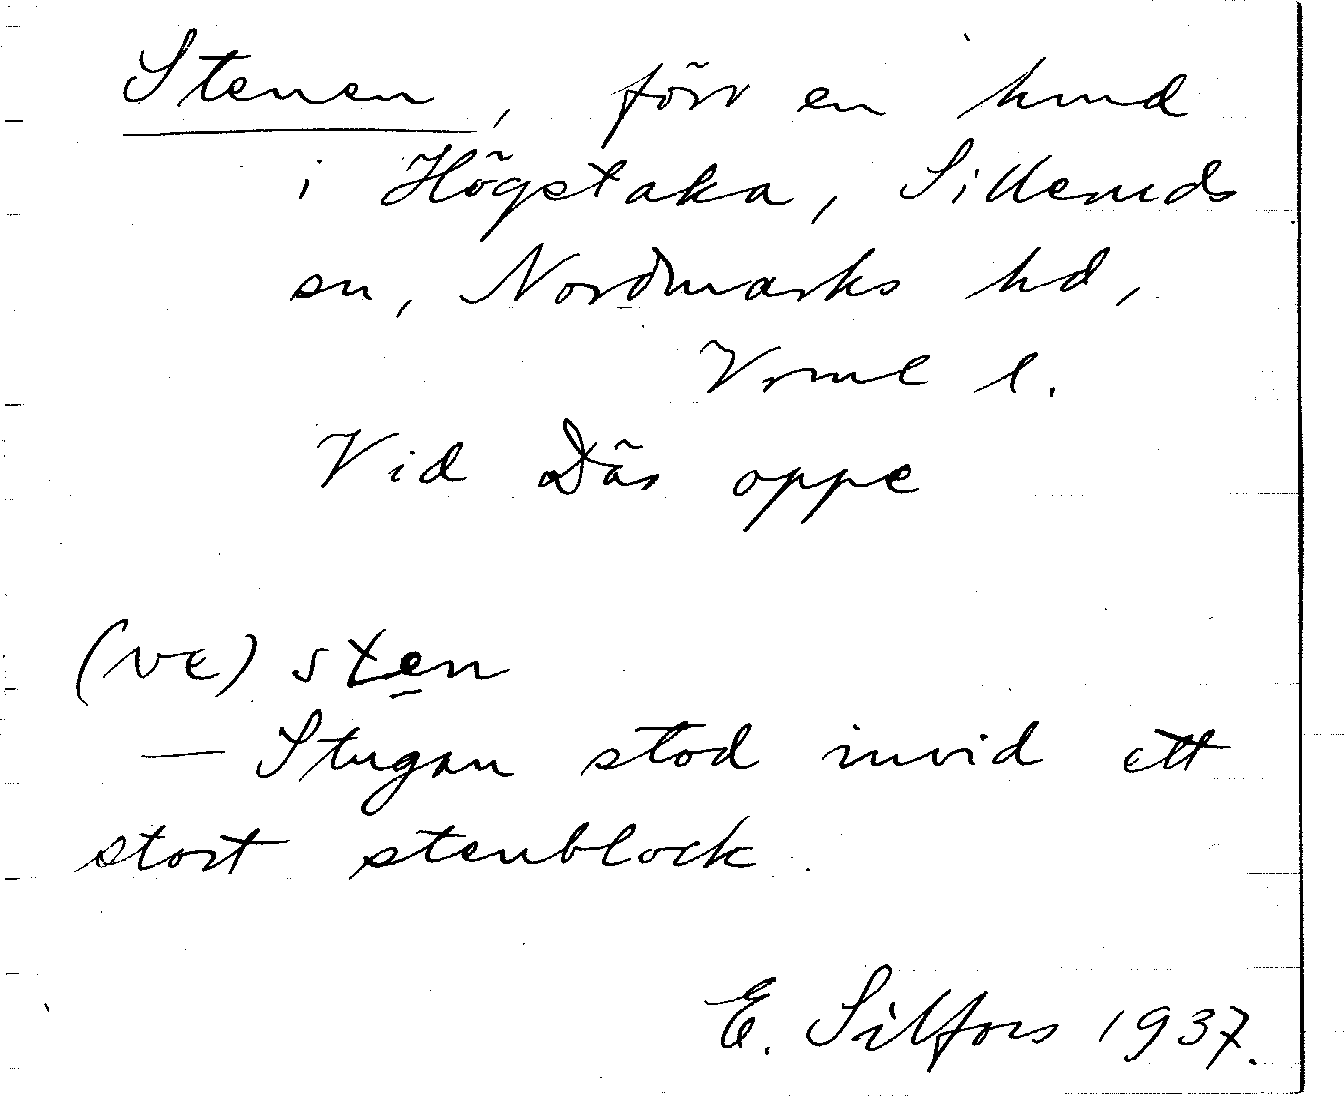 Stenen, förr en hmd
i Högstaka, Silleruds
sn, Nordmarks hd,
Vrml l.
Vid Däs oppe
(vɛ) sten
— Stugan stod invid ett
stort stenblock.
E. Silfors 1937.